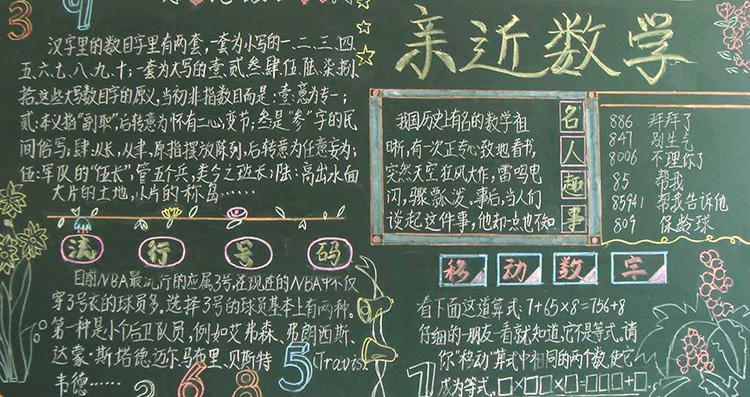 3
9
汉字里的数目字里有两套,一套为小写的一、二、三、四、
五、六、七、八、九、十;一套为大写的壹、贰、叁、肆、伍、陆、柒、捌、
拾。这些大写数目字的原义,当初非指数目而是:壹:意为专一;
贰:本义指“副职”,后转意为怀有二心,变节,叁是“参”字的民
间俗写,肆:从长,从聿,原指摆放陈列,后转意为任意妄为;
伍:军队的“伍长”管五个兵,类今之班长;陆:高出水面
大片的土地,小片的称岛……
流 行 号 码
目前NBA最流行的应属3号,在现连的NBA中不仅
穿3号衣的球员多。选择3号的球员基本上有两种。
第一种是小个后卫队员,例如艾弗森、弗朗西斯、
达蒙·斯塔德迈尔、马布里、贝斯特 (Travis
韦德……
2 6 8 5
亲近数学
我国历史上有名的数学祖
晰,有一次正专心致地看书,
突然天空狂风大作,雷鸣电
闪,骤飘泼。事后,当人们
谈起这件事,他却一点也不知
名人趣事
886 拜拜了
847 别生气
8006 不理你了
85 帮我
85941 帮我告诉他
809 保龄球
移 动 数 字
看下面这道算式:7+65×8=756+8
仔细的一朋友一看就知道,它是等式。请
你“移动”算式中相同的两个数,使它
成为等式。□×□×□=□□□+□.
1